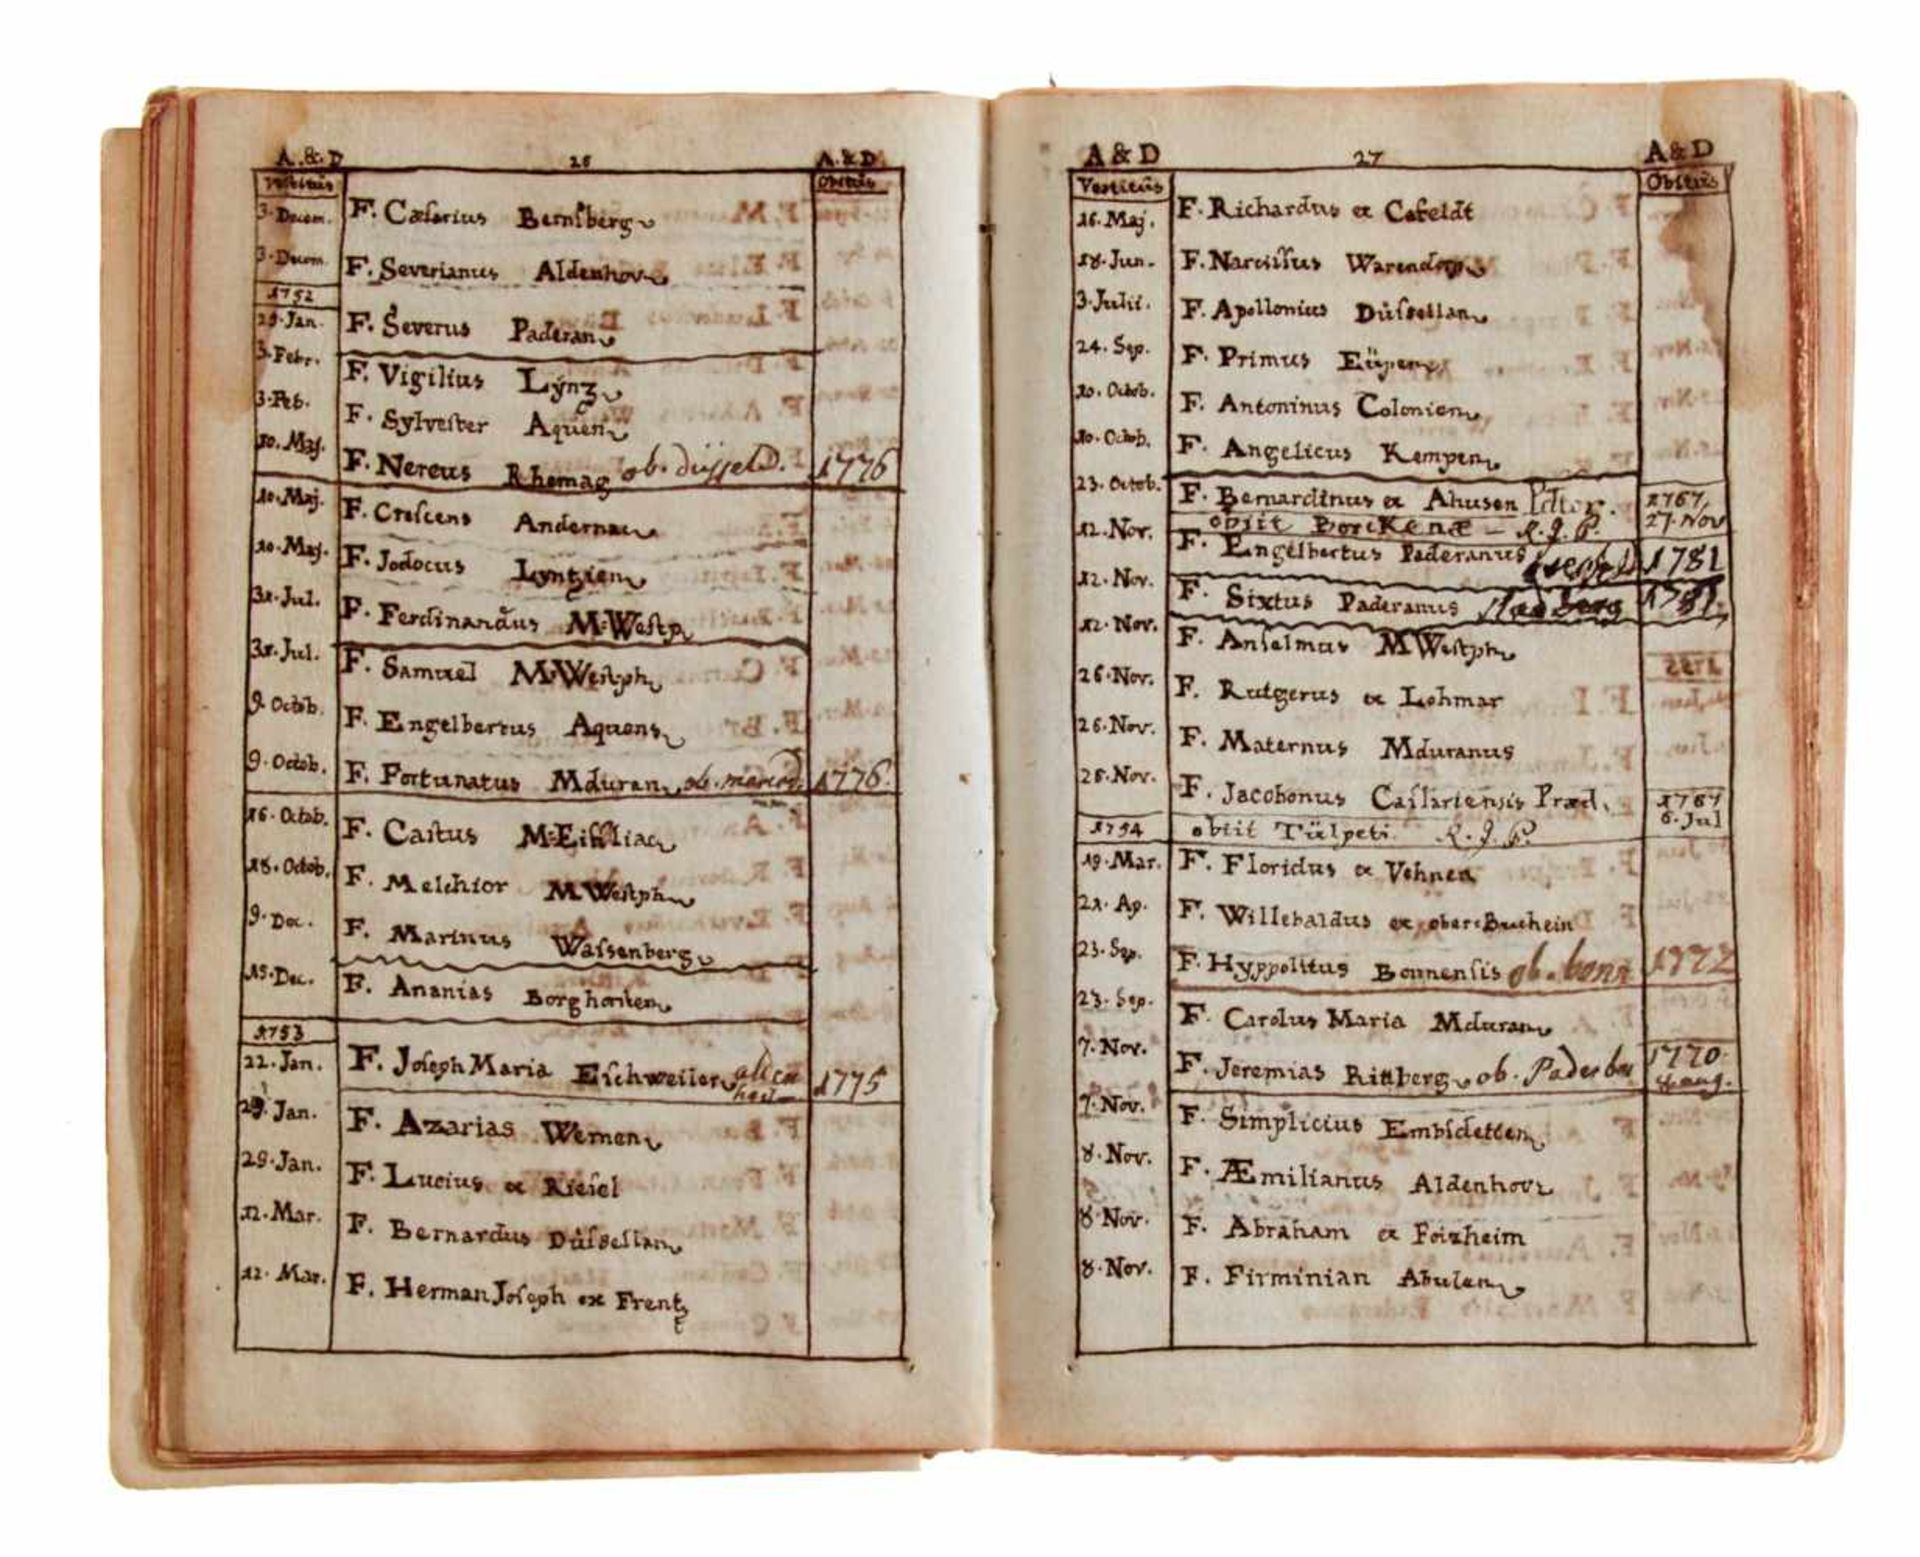 A. & D 26 A. & D
Vestitus Obitus
3. Decem. F. Cæsarius Bernsberg
3. Decem. F. Severianus Aldenhov
1752
29. Jan. F. Severus Paderan
3. Febr. F. Vigilius Lÿnz
3. Feb. F. Sylvester Aquen
10. Maj. F. Nereus Rhemag ob. düsseld. 1776
10. Maj. F. Crescens Andernac
10. Maj. F. Jodocus Lyntzien
31. Jul. F. Ferdinandus M. Westp
31. Jul. F. Samuel M. Westph
9. Octob. F. Engelbertus Aquens
9. Octob. F. Fortunatus Mduran ob. 1776.
16. Octob. F. Castus M. Eiffliac
18. Octob. F. Melchior M Westph
9. Dec. F. Marinus Wassenberg
15. Dec. F. Ananias Borghorsten
1753
22. Jan. F. Joseph Maria Eschweiler 1775
29. Jan. F. Azarias Wemen
29. Jan. F. Lucius ex Riesel
12. Mar. F. Bernardus Düssellan
12. Mar. F. Herman Joseph ex Frentz
A & D 27 A & D
Vestitus Obitus
16. Maj. F. Richardus ex Cofeldt
18. Jun. F. Narcissus Warendorp
3. Julii. F. Apollonius Düssellan
24. Sep. F. Primus Eüpen
10. Octob. F. Antoninus Colonien
10. Octob. F. Angelicus Kempen
23. Octob. F. Bernardinus ex Ahusen 1767,
obiit Borckenæ - R. J. P. 27. Nov
12. Nov. F. Engelbertus Paderanus 1781
12. Nov. F. Sixtus Paderanus 1781
12. Nov. F. Anselmus M Westph
26. Nov. F. Rutgerus ex Lohmar
26. Nov. F. Maternus Mduranus
26. Nov. F. Jacobonus Caslariensis Præd. 1767
1754 obiit Tülpeti R. J. P. 6. Jul
19. Mar. F. Floridus ex Vehnen
21. Ap. F. Willebaldus ex
23. Sep. F. Hyppolitus Bonnensis ob. bonn 1772
23. Sep. F. Carolus Maria Mduran
7. Nov. F. Jeremias Rittberg ob. Paderbor 1770
8 aug.
7. Nov. F. Simplicius Embsdetten
8. Nov. F. Æmilianus Aldenhov
8. Nov. F. Abraham ex Foizheim
8. Nov. F. Firminian Abulen